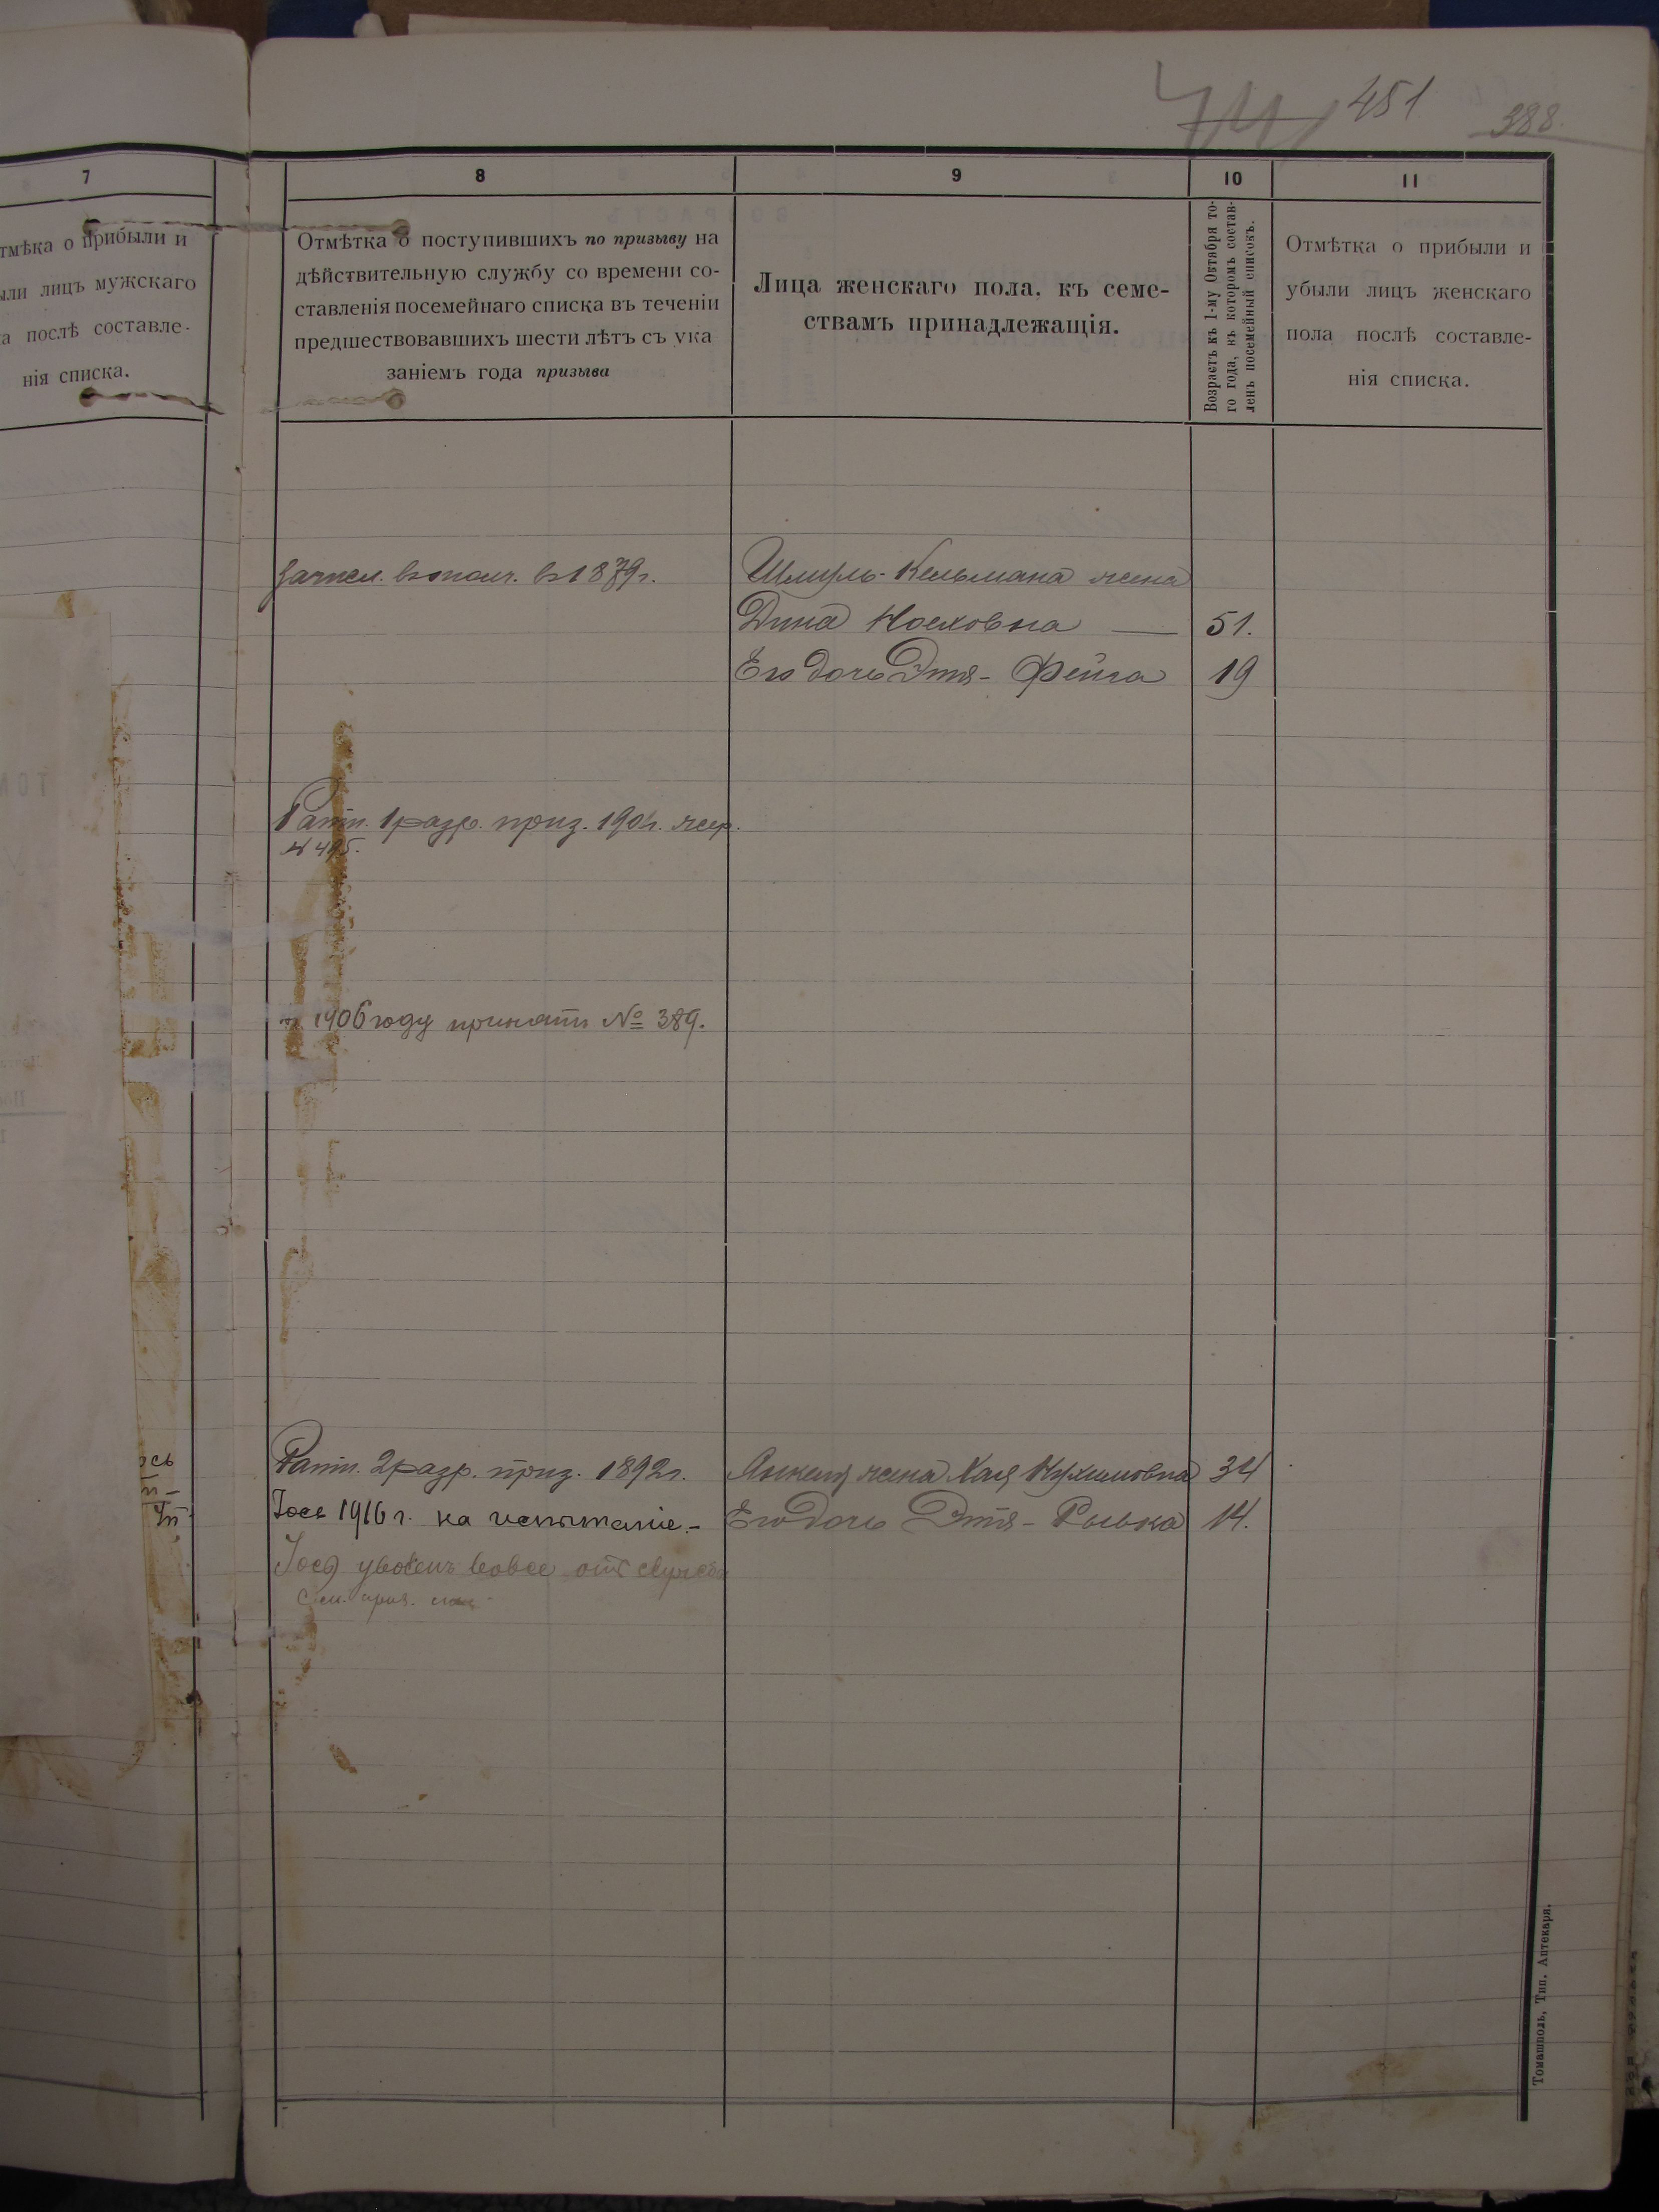 451
388.
7
тмѣка о прибыли и
ыли лицъ мужскаго
а послѣ составле-
нія списка.
8
Отмѣтка о поступившихъ по призыву на
дѣйствительную службу со времени со-
ставленія посемейнаго списка въ теченіи
предшествовавшихъ шести лѣтъ съ ука
заніемъ года призыва
9
Лица женскаго пола, къ семе-
ствамъ принадлежащія.
10
Возрастъ къ 1-му Октября то-
го года, въ которомъ состав-
ленъ посемейный списокъ.
11
Отмѣтка о прибыли и
убыли лицъ женскаго
пола послѣ составле-
нія списка.
Зачисл. в ополч. в 1879г.
Шмуль-Кельмана жена
Дина Носховна — 51.
Его дочь Этя-Фейга 19
Ратн. 1 разр. приз. 190 г. жер.
1906 году принятъ № 389.
Ратн. 2 разр. приз. 1892г.
Янкеля жена Хая Нухимовна 34
Іось 1916 г. на испытаніе.-
Его дочь Этя-Рывка 14.
Іось уволенъ вовсе отъ службы
См. приз. спи
ось
Томашполь, Тип. Аптекаря.